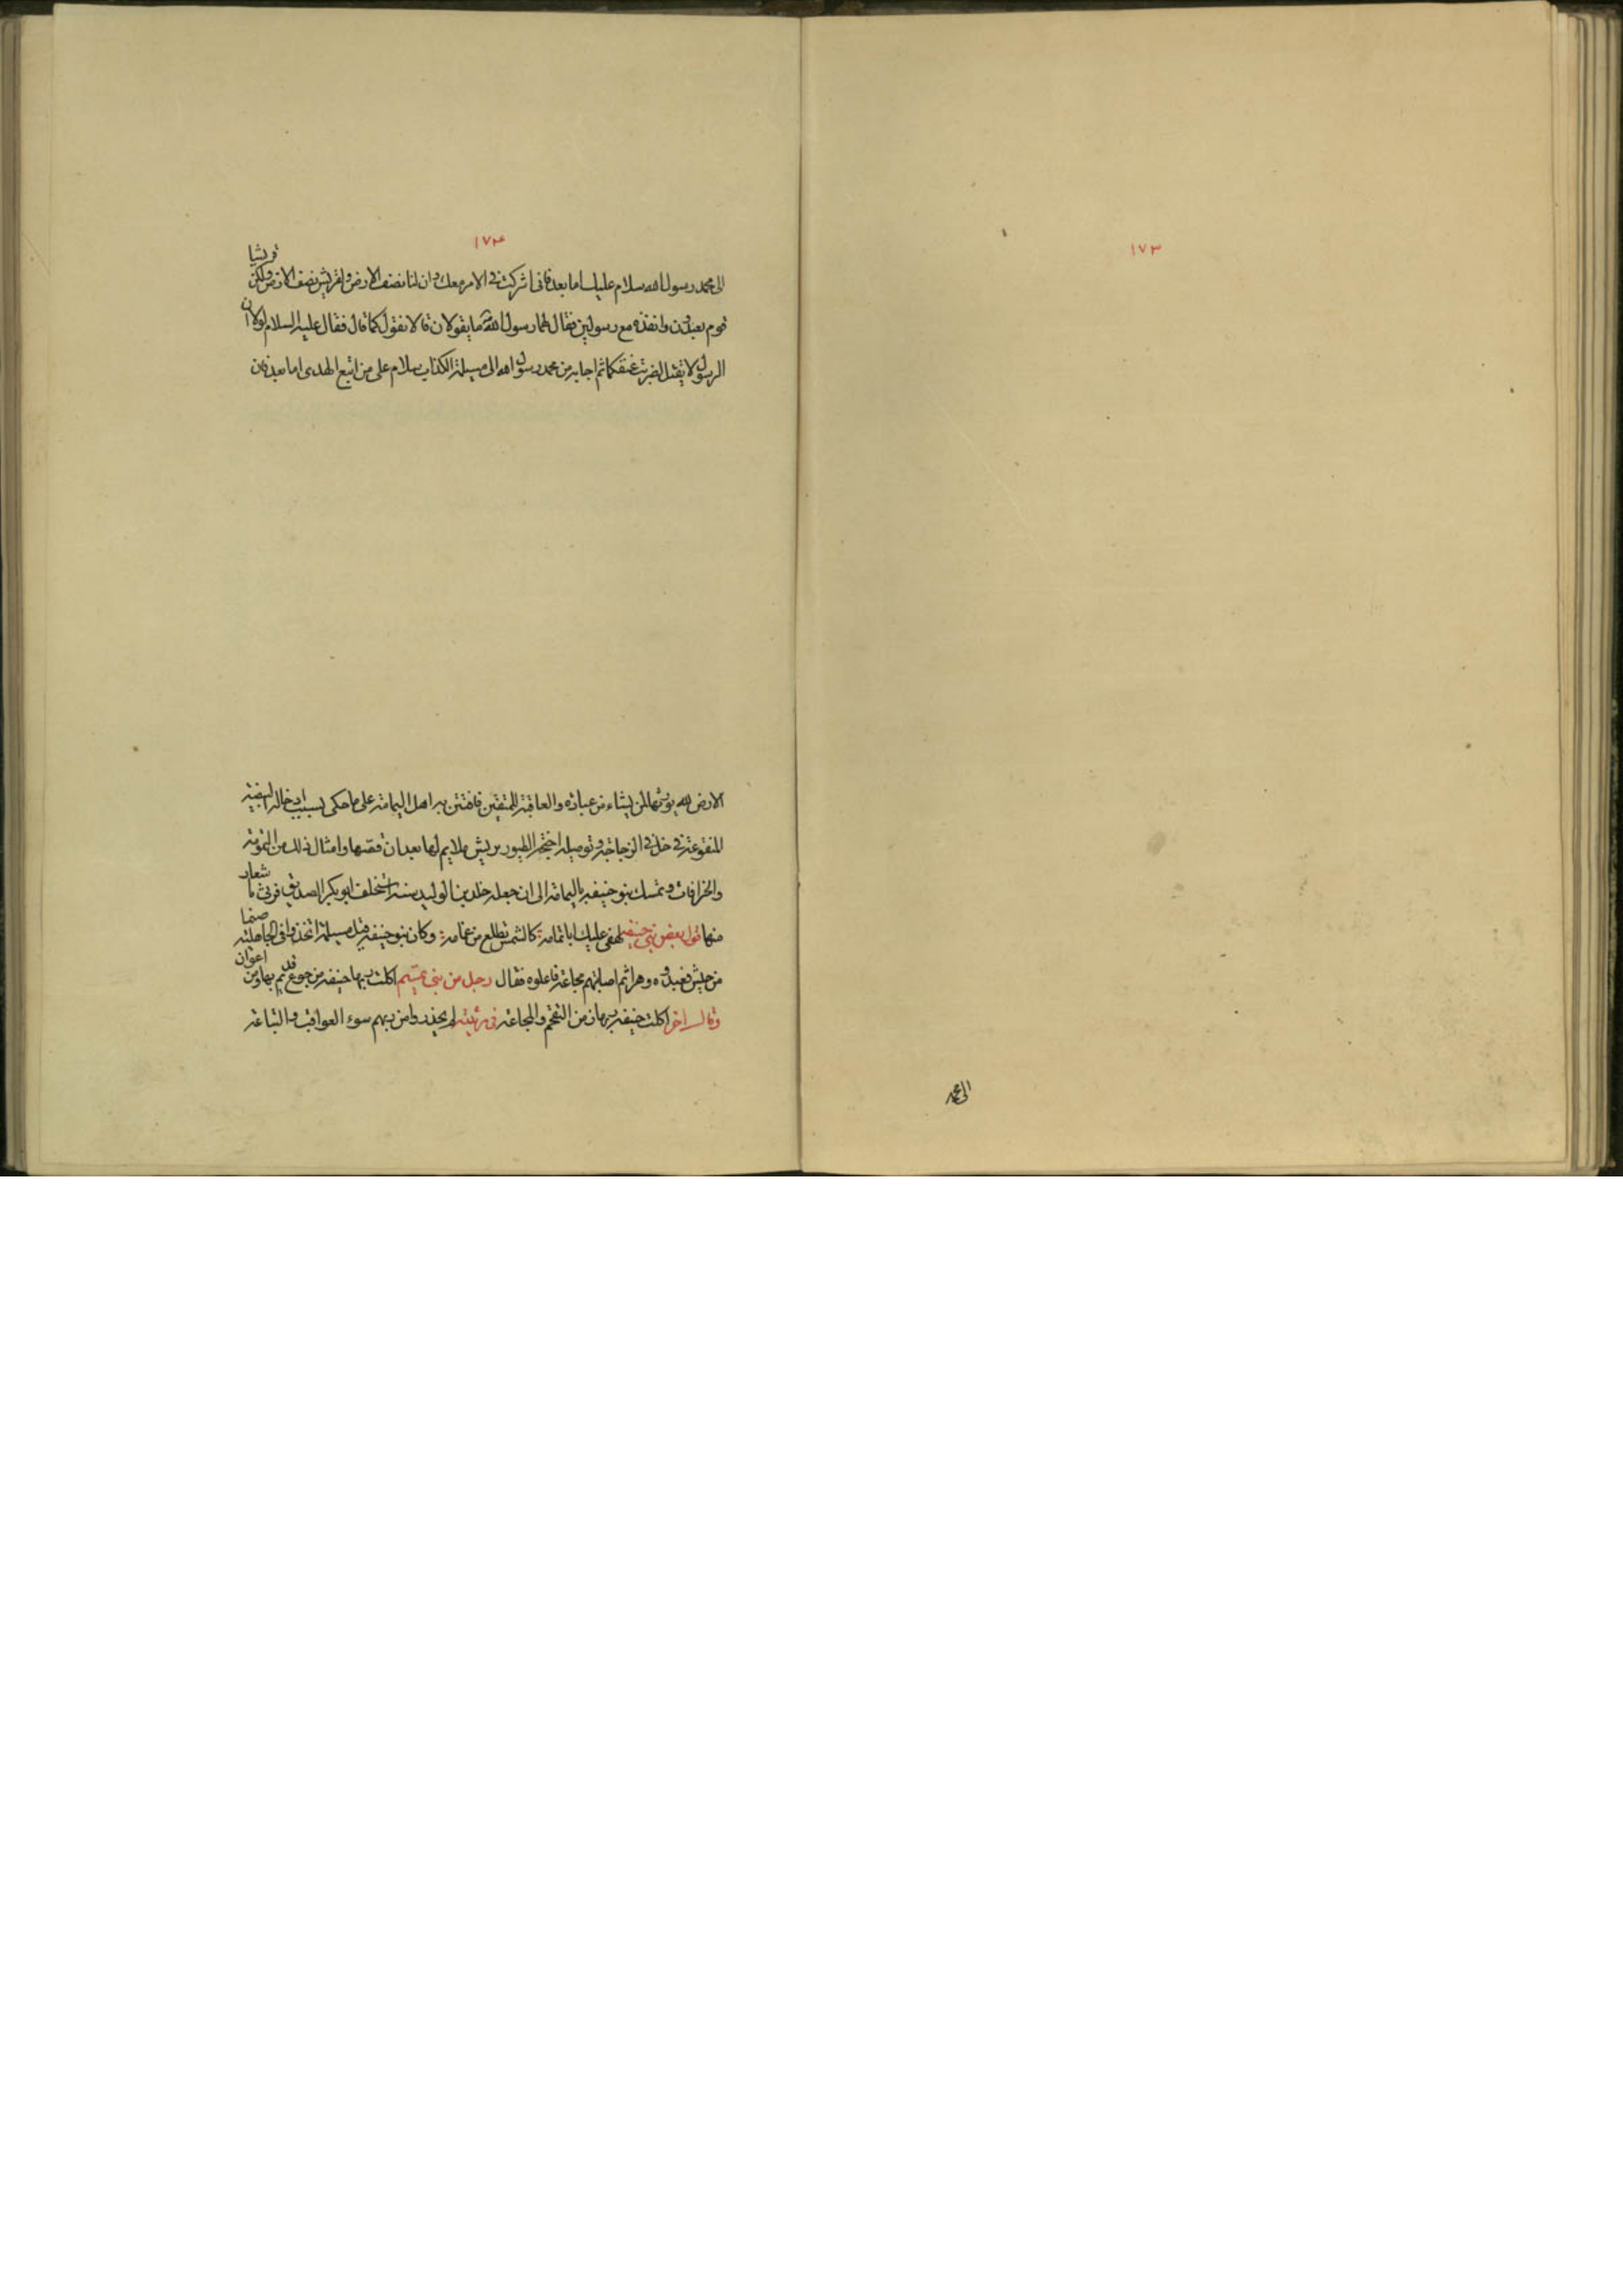 ١٧٣
الى محمد
١٧٤
الى محمد رسول الله سلام عليك اما بعد فانى اشركت فى الامر معك وان لنا نصف الارض ولقريش نصف الارض ولكن قريشا
قوم يعتدون وانفذه مع رسولين فقال لهما رسول الله ما يقولان قالا نقول كما قال فقال عليه السلام لولا ان
الرسول لا يقتل لضربت عنقكما ثم اجابه من محمد رسول الله الى مسيلمة الكذاب سلام على من اتبع الهدى اما بعد فان
الارض لله يورثها من يشاء من عباده والعاقبة للمتقين فافتتن به اهل اليمامة على ما حكى بسبب ادخاله البيضة
المنقوعة فى خل فى الزجاجة وتوصيله اجنحة الطيور بريش ملايم لها بعد ان قصها وامثال ذلك من
والخرافات وتمسك بنو حنيفة باليمامة الى ان خلد بن الوليد سنة استخلف ابو بكر الصديق
منها قول بعض بنى حنيفة لهفى عليك ابا ثمامة كالشمس تطلع من غمامة وكان بنو حنيفة قبل مسيلمة اتخذوا فى الجاهلية صنما
من حيس فعبدوه دهرا ثم اصابتهم مجاعة فاكلوه فقال رجل من بنى تميم اكلت ربها حنيفة من جوع قديم بها ومن اعوان
وقال اخر اكلت حنيفة ربها زمن التقحم والمجاعة لم يحذروا من ربهم سوء العواقب والتباعة